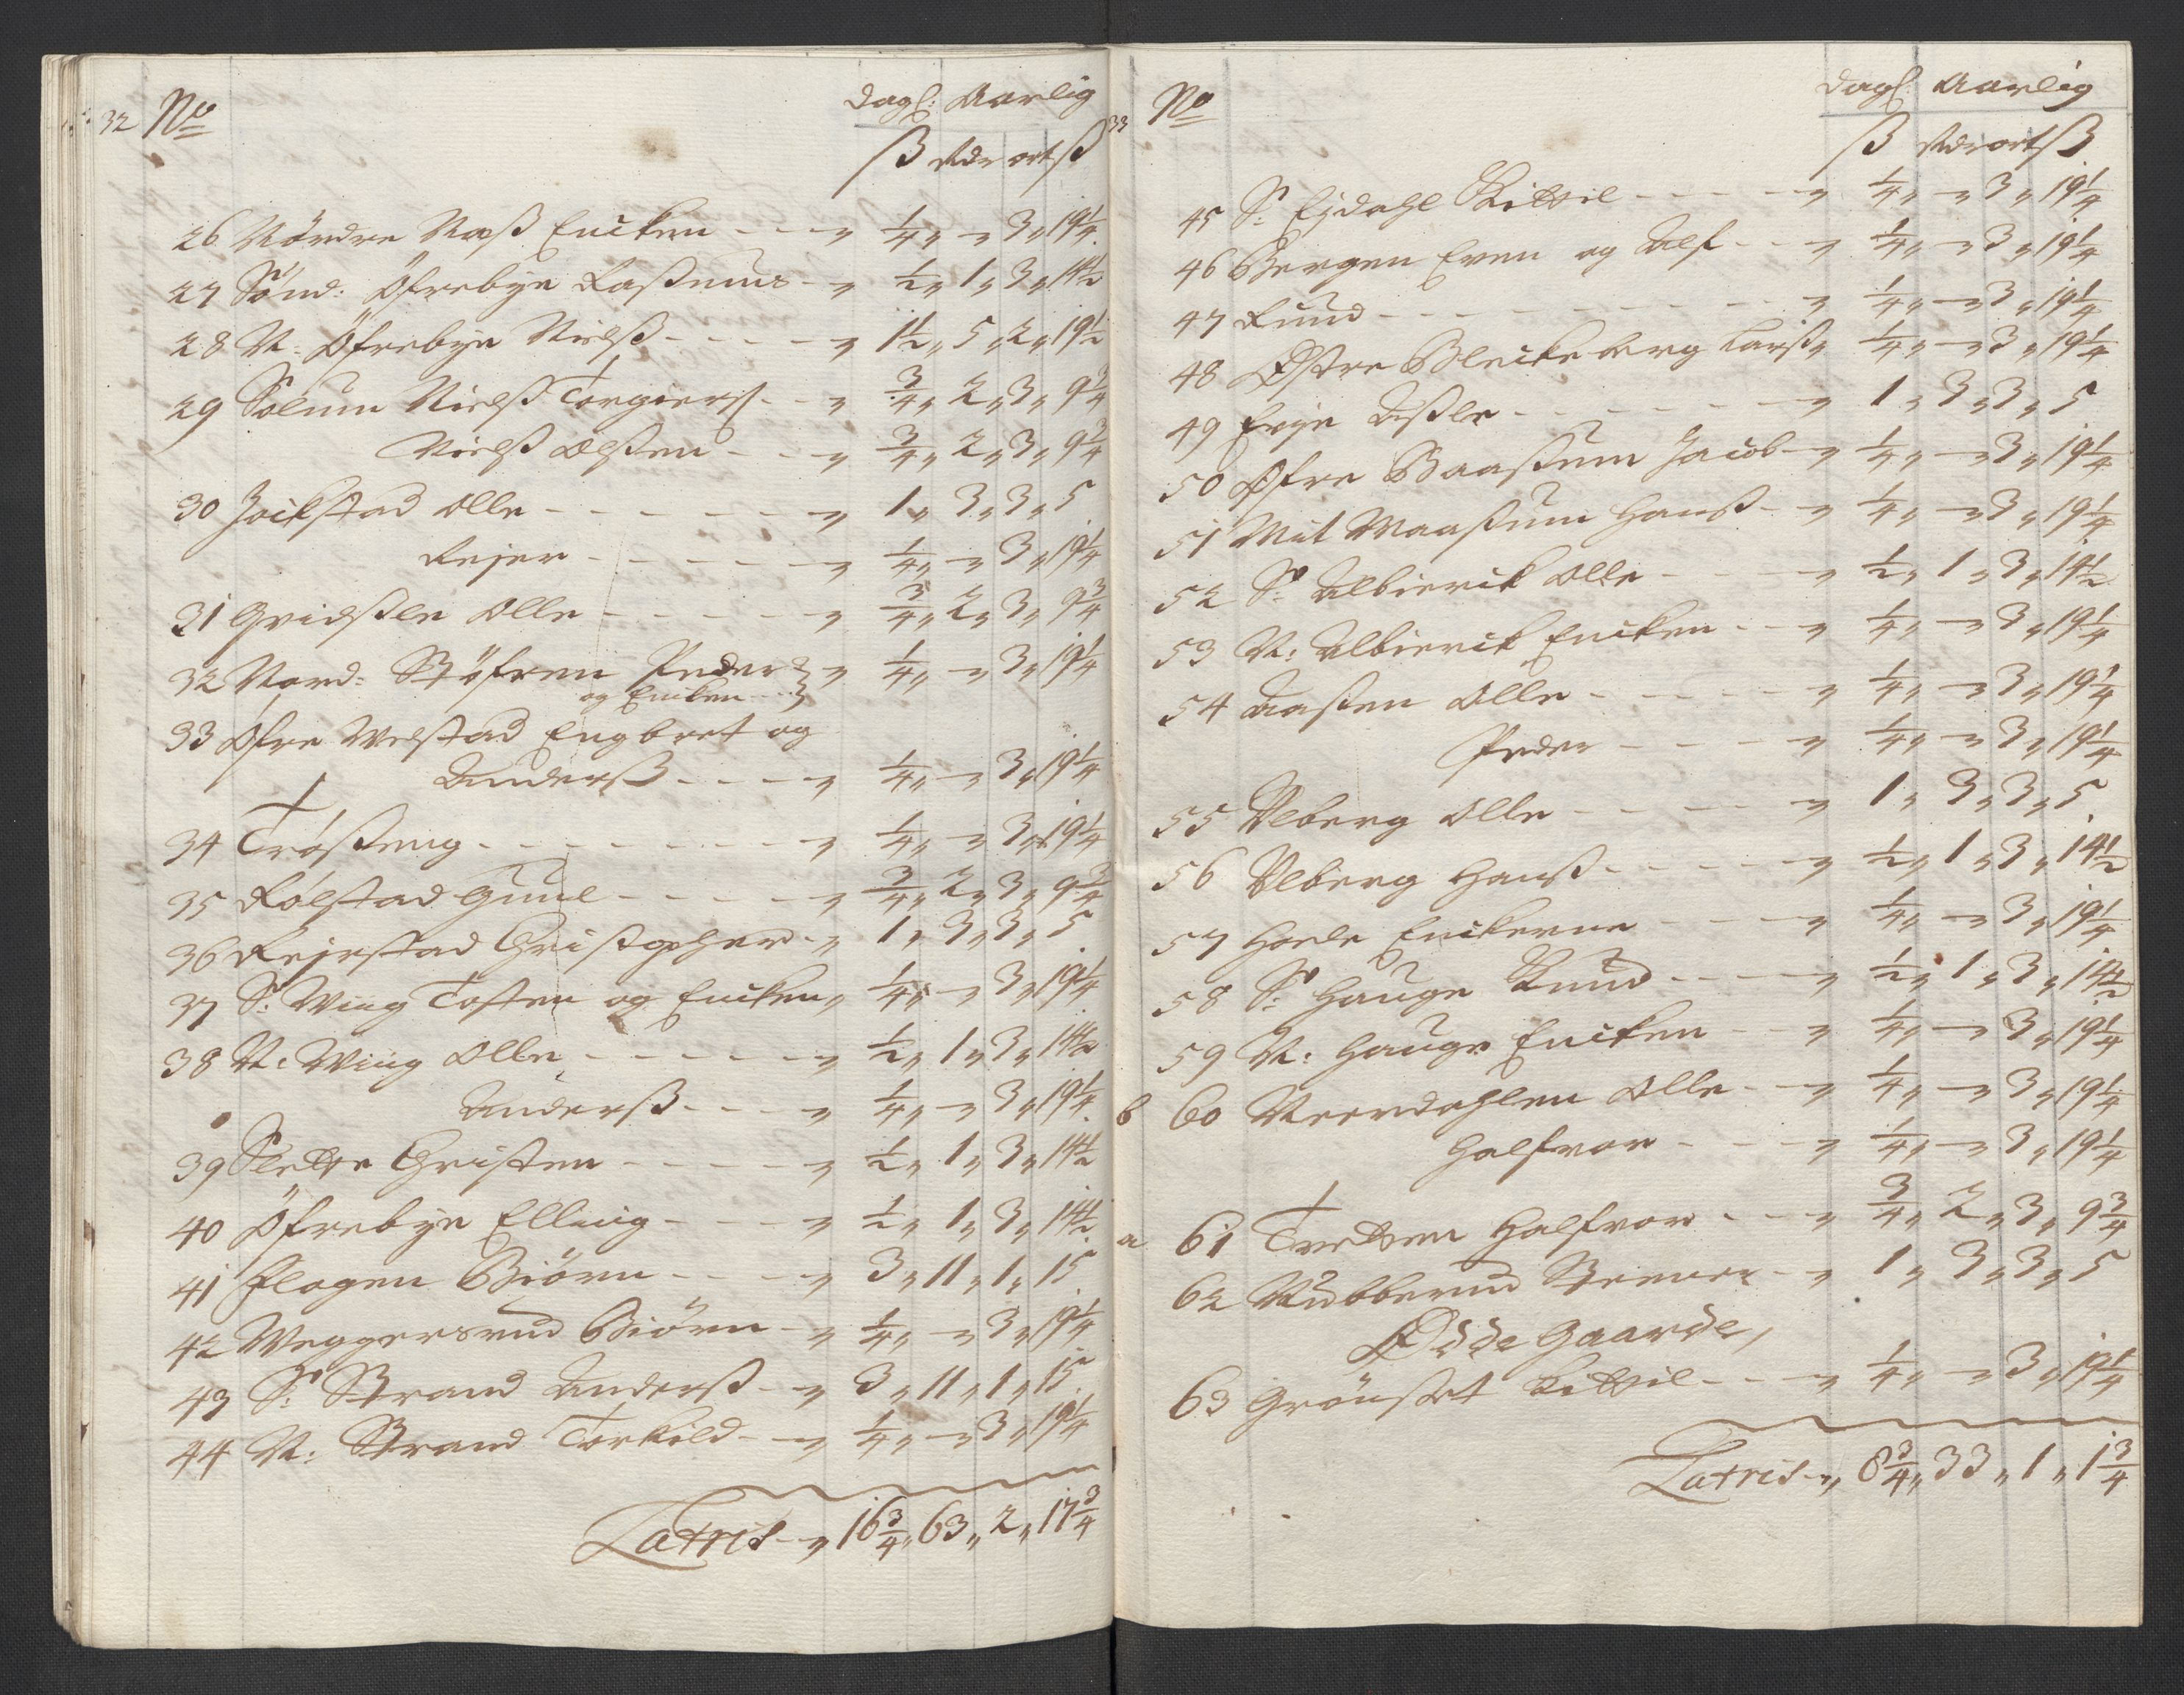 32 No dagl: Aarlig
ß Rdr ort ß
26 Nördre Naß Encken - - - „ 1/4 „ - „ 3 „ 19 1/4
27 Sönd: Öfrebye Raßmus - „ 1/2 „ 1 „ 3 „ 14 1/2
28 N. Öfrebye Nielß - - - - „ 1 1/2 „ 5 „ 2 „ 19 1/2
29 Solum Nielß Torgierß - - „ 3/4 „ 2 „ 3 „ 9 3/4
Nielß Olßen - - - „ 3/4 „ 2 „ 3 „ 9 3/4
30 Joickstad Olle - - - - - - „ 1 „ 3 „ 3 „ 5
Rejer - - - - - „ 1/4 „ - „ 3 „ 19 1/4
31 Gvidßle Olle - - - - - „ 3/4 „ 2 „ 3 „ 9 3/4
32 Nord: Støfren Peder „ 1/4 „ - „ 3 „ 19 1/4
og Encken
33 Øfre Welstad Engbret og
Anderß - - - - „ 1/4 „ - „ 3 „ 19 1/4
34 Tròßeng - - - - - - - - „ 1/4 „ - „ 3 „ 19 1/4
35 Rólstad Guul - - - - - „ 3/4 „ 2 „ 3 „ 9 3/4
36 Rejerstad Christopher - „ 1 „ 3 „ 3 „ 5
37 S: Wiig Tosten og Encken „ 1/4 „ - „ 3 „ 19 1/4
38 N: Wiig Olle - - - - - „ 1/2 „ 1 „ 3 „ 14 1/2
Anderß - - - „ 1/4 „ - „ 3 „ 19 1/4
39 Slette Christen - - - - - „ 1/2 „ 1 „ 3 „ 14 1/2
40 Öfrebye Elling - - - - „ 1/2 „ 1 „ 3 „ 14 1/2
41 Flagen Biörn - - - - „ 3 „ 11 „ 1 „ 15
42 Weggersrud Biörn - „ 1/4 „ - „ 3 „ 19 1/4
43 S: Strand Anderß - „ 3 „ 11 „ 1 „ 15
44 N: Strand Torkild - „ 1/4 „ - „ 3 „ 19 1/4
Latris - „ 16 3/4 „ 63 „ 2 „ 17 3/4
33 No dagl: Aarlig
ß Rdr ort ß
45 S: Eydahl Kittil - - - - „ 1/4 „ - „ 3 „ 19 1/4
46 Bergen Even og Alf - - „ 1/4 „ - „ 3 „ 19 1/4
47 Rund - - - - - - - - „ 1/4 „ - „ 3 „ 19 1/4
48 Østre Bleikeberg Larß „ 1/4 „ - „ 3 „ 19 1/4
49 Evje Aßle - - - - - - „ 1 „ 3 „ 3 „ 5
50 Øfre Baaßum Jacob - „ 1/4 „ - „ 3 „ 19 1/4
51 Mit Maaßum Hanß - - „ 1/4 „ - „ 3 „ 19 1/4
52 S: Albierik Olle - - - - „ 1/2 „ 1 „ 3 „ 14 1/2
53 N: Albierik Encken - - „ 1/4 „ - „ 3 „ 19 1/4
54 Aaßen Olle - - - - - „ 1/4 „ - „ 3 „ 19 1/4
Peder - - - - „ 1/4 „ - „ 3 „ 19 1/4
55 Ulberg Olle - - - - - „ 1 „ 3 „ 3 „ 5
56 Ulberg Hanß - - - - - „ 1/2 „ 1 „ 3 „ 14 1/2
57 Hoele Enckerne - - - - „ 1/4 „ - „ 3 „ 19 1/4
58 S: Hauge Knud - - - - „ 1/2 „ 1 „ 3 „ 14 1/2
59 N: Hauge Encken - - „ 1/4 „ - „ 3 „ 19 1/4
b 60 Meerdahlen Olle - - „ 1/4 „ - „ 3 „ 19 1/4
Halfvor - - - „ 1/4 „ - „ 3 „ 19 1/4
a 61 Tretten Halfvor - - - „ 3/4 „ 2 „ 3 „ 9 3/4
62 Rubberud Steener - „ 1 „ 3 „ 3 „ 5
Øde Gaarde,
63 Grönset Kittil - - - „ 1/4 „ - „ 3 „ 19 1/4
Latris - „ 8 3/4 „ 33 „ 1 „ 1 3/4